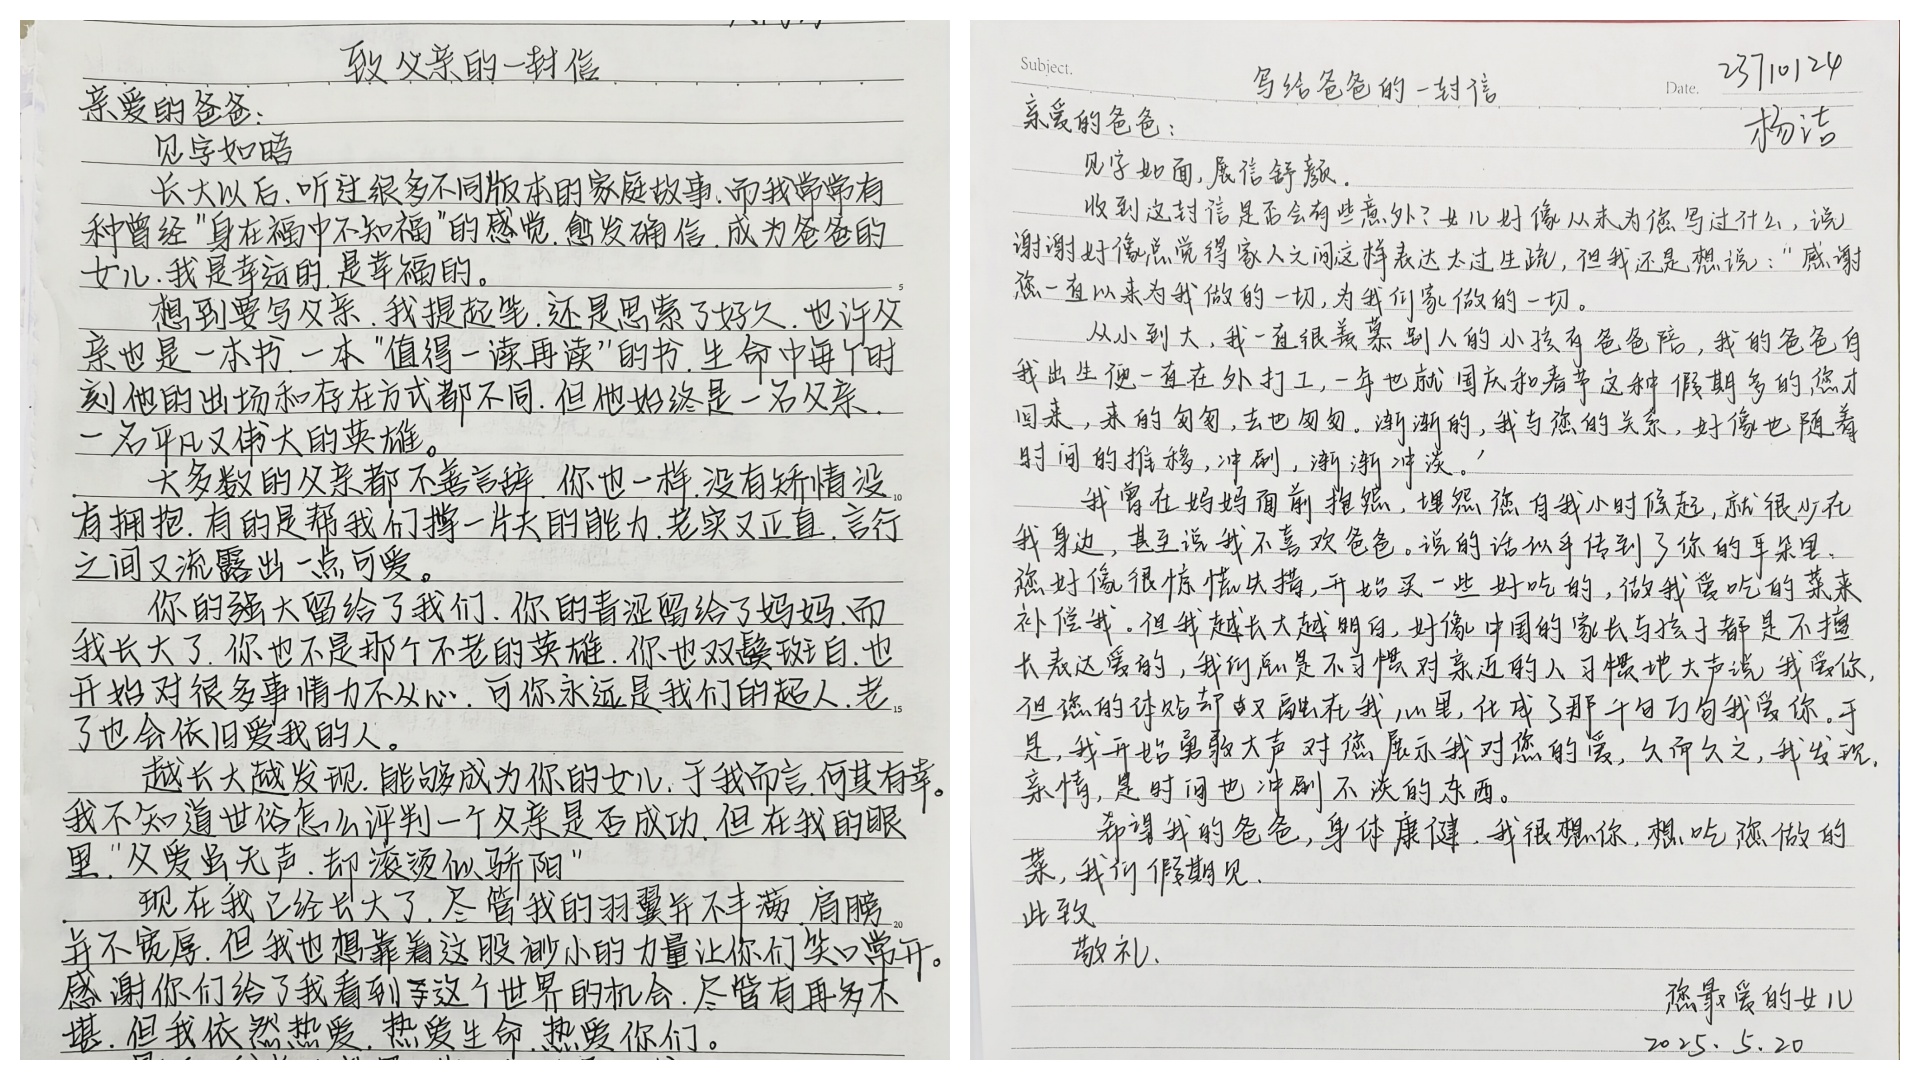 致父亲的一封信
亲爱的爸爸：
见字如晤
长大以后.听过很多不同版本的家庭故事.而我常常有
种曾经"身在福中不知福"的感觉.愈发确信.成为爸爸的
女儿.我是幸运的.是幸福的。
想到要写父亲.我提起笔.还是思索了好久.也许父
亲也是一本书.一本"值得一读再读"的书.生命中每个时
刻他的出场和存在方式都不同.但他始终是一名父亲.
一名平凡又伟大的英雄。
大多数的父亲都不善言辞.你也一样.没有矫情没
有拥抱.有的是帮我们撑一片天的能力.老实又正直.言行
之间又流露出一点可爱。
你的强大留给了我们.你的青涩留给了妈妈.而
我长大了.你也不是那个不老的英雄.你也双鬓斑白.也
开始对很多事情力不从心.可你永远是我们的超人.老
了也会依旧爱我的人。
越长大越发现.能够成为你的女儿.于我而言.何其有幸。
我不知道世俗怎么评判一个父亲是否成功.但在我的眼
里."父爱虽无声.却滚烫似骄阳"
现在我已经长大了.尽管我的羽翼并不丰满.肩膀
并不宽厚.但我也想靠着这股渺小的力量让你们笑口常开。
感谢你们给了我看到这个世界的机会.尽管有再多不
堪.但我依然热爱.热爱生命.热爱你们。
Subject.
Date.
23710124
写给爸爸的一封信
杨洁
亲爱的爸爸：
见字如面,展信舒颜.
收到这封信是否会有些意外？女儿好像从来为您写过什么，说
谢谢好像总觉得家人之间这样表达太过生疏，但我还是想说："感谢
您一直以来为我做的一切,为我们家做的一切。
从小到大，我一直很羡慕别人的小孩有爸爸陪，我的爸爸自
我出生便一直在外打工，一年也就国庆和春节这种假期多的您才
回来，来的匆匆,去也匆匆。渐渐的,我与您的关系，好像也随着
时间的推移,冲刷，渐渐冲淡。
我曾在妈妈面前抱怨，埋怨您自我小时候起，就很少在
我身边，甚至说我不喜欢爸爸。说的话似乎传到了你的耳朵里、
您好像很惊慌失措,开始买一些好吃的，做我爱吃的菜来
补偿我。但我越长大越明白,好像中国的家长与孩子都是不擅
长表达爱的，我们总是不习惯对亲近的人习惯地大声说我爱你,
但您的体贴却又融在我心里,化成了那千句万句我爱你。于
是,我开始勇敢大声对您展示我对您的爱，久而久之,我发现,
亲情，是时间也冲刷不淡的东西。
希望我的爸爸，身体康健.我很想你,想吃您做的
菜，我们假期见.
此致
敬礼.
您最爱的女儿
2025.5.20